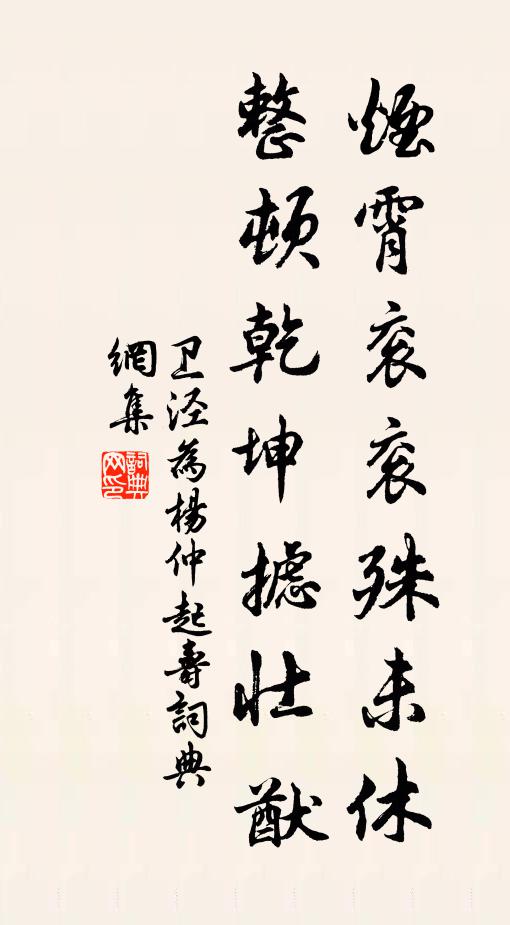 煙霄衮衮殊未休
整頓乾坤攄壯猷
卫泾為楊仲起壽詞典
網集
詞典網印